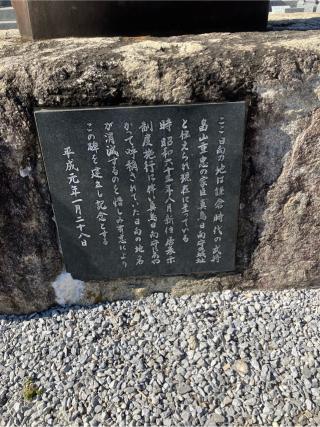 ここ日向の地は鎌倉時代の武将
畠山重忠の家臣真鳥日向守の城址
と伝えられ現在に至っている
時昭和六十三年八月新住居表示
制度施行に伴い真鳥日向守にあや
かって呼称されていた日向の地名
が消滅するのを惜しみ有志により
この碑を建立し記念とする
平成元年一月二十八日